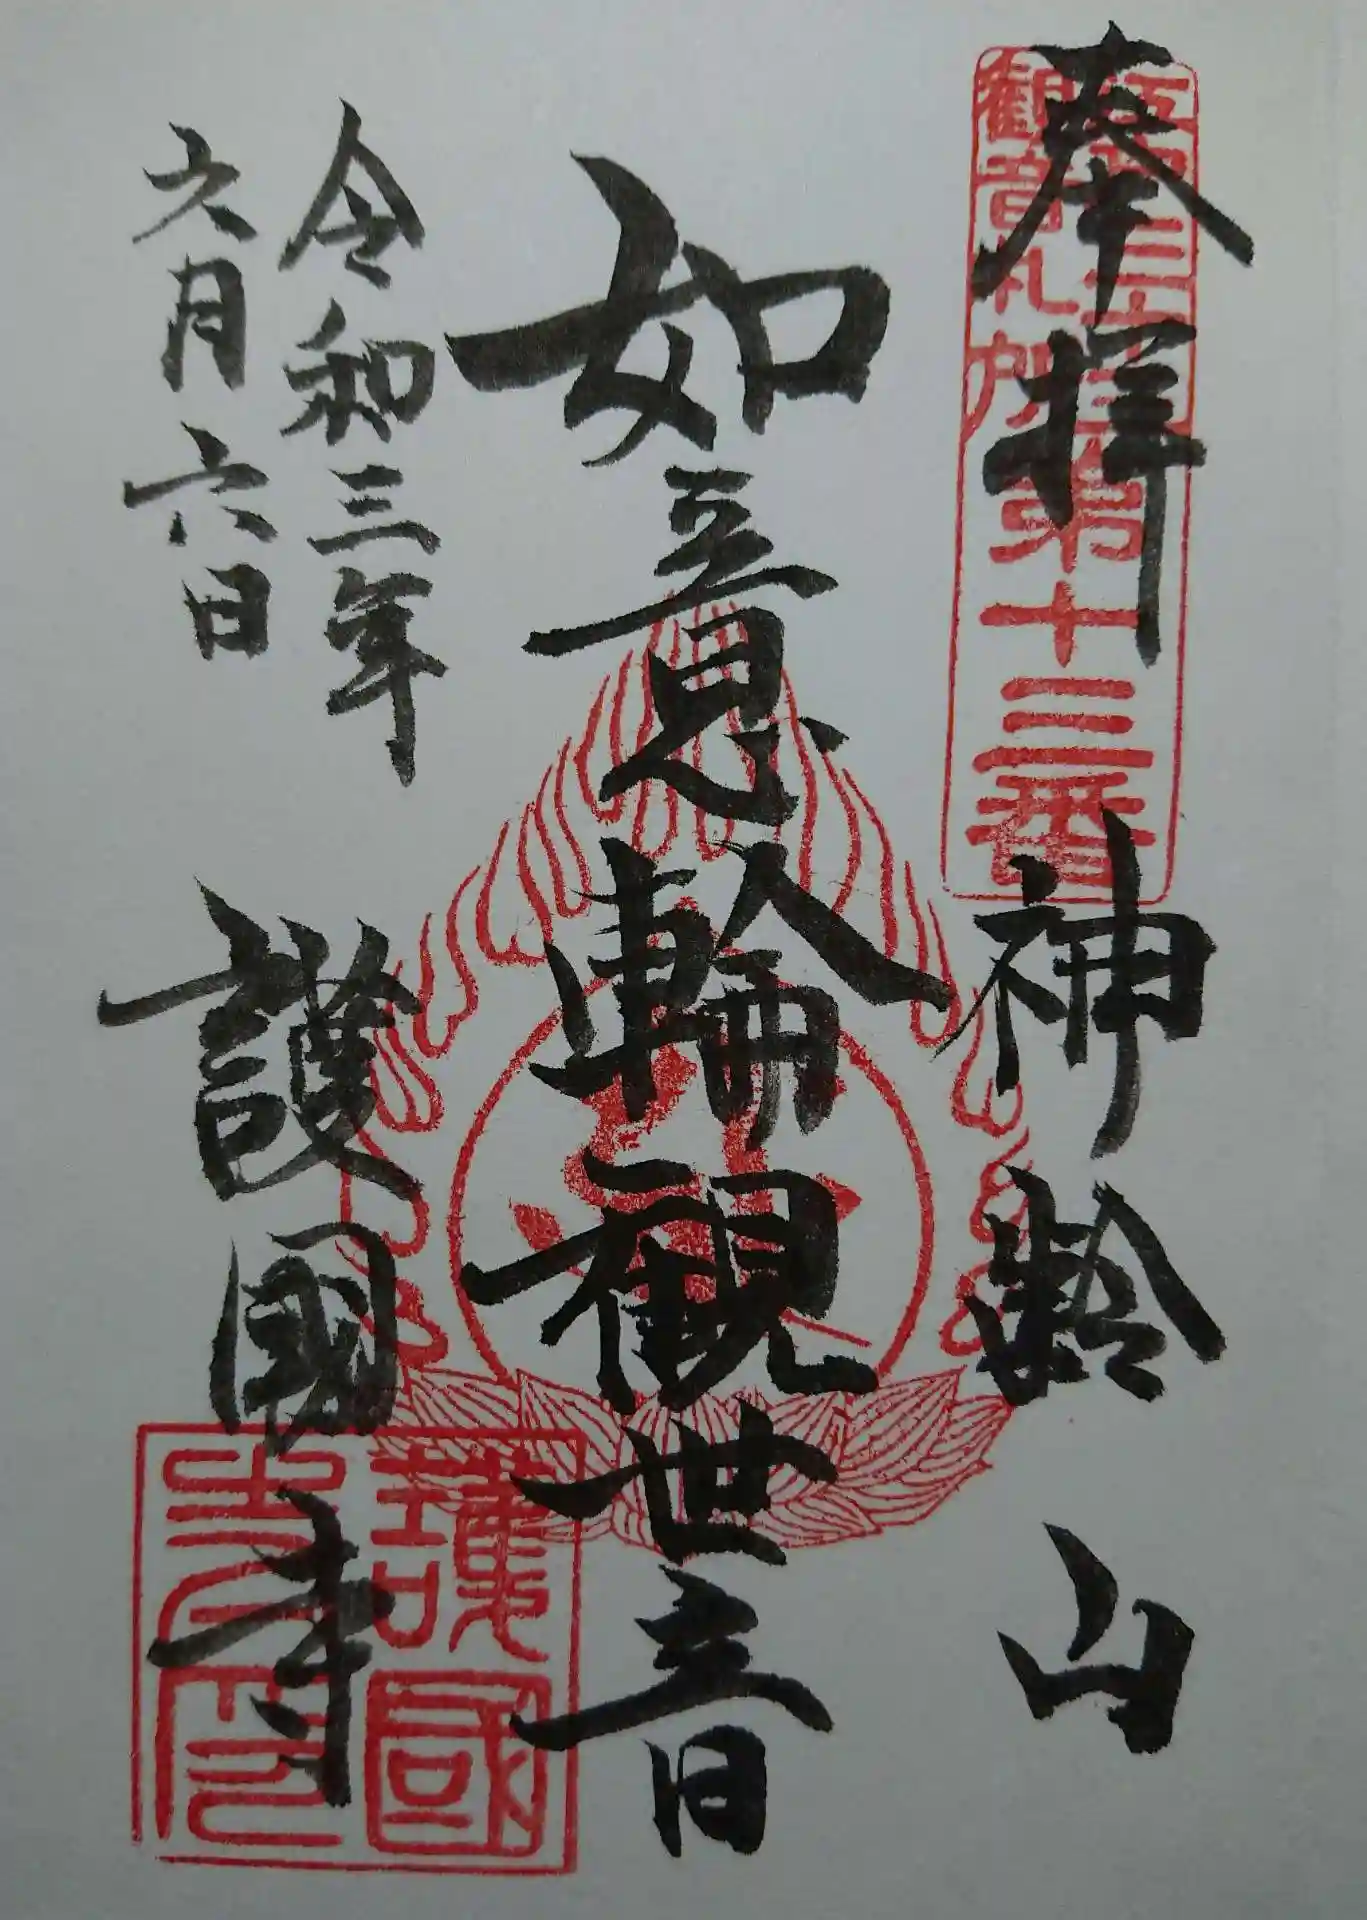 奉拝
神齢山
江戸三十三
観音札所
第十三番
如意輪観世音
令和三年
六月六日
護國寺
護國
寺印